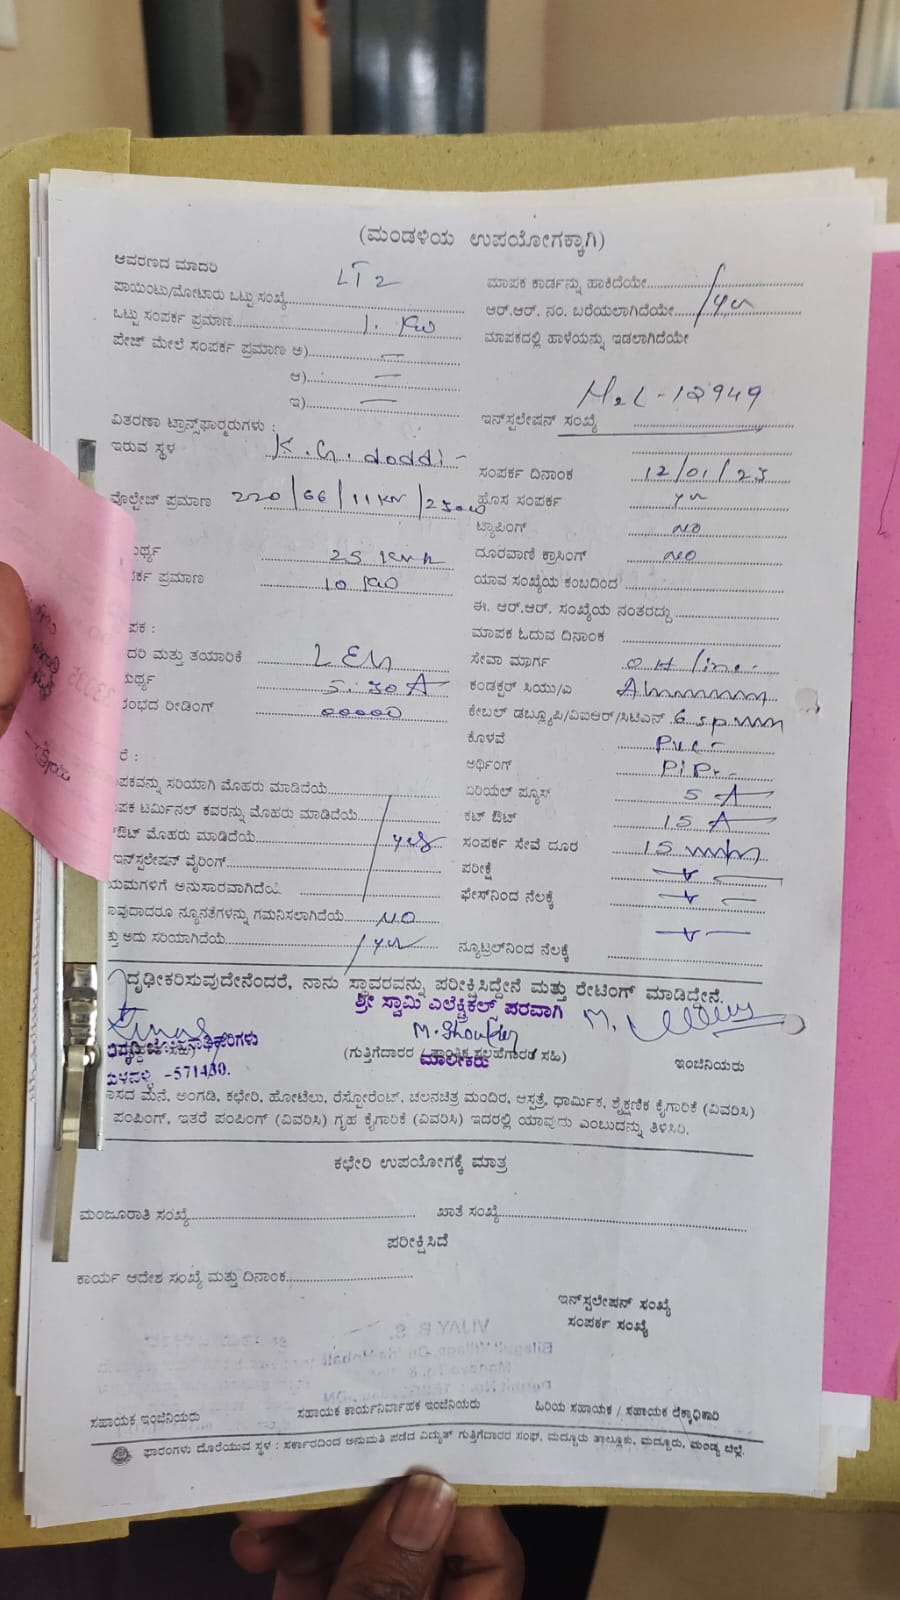 (ಮಂಡಳಿಯ ಉಪಯೋಗಕ್ಕಾಗಿ)
ಆವರಣದ ಮಾದರಿ LT2
ಪಾಯಿಂಟು/ಮೋಟಾರು ಒಟ್ಟು ಸಂಖ್ಯೆ
ಒಟ್ಟು ಸಂಪರ್ಕ ಪ್ರಮಾಣ 1. KW
ಪೇಜ್ ಮೇಲೆ ಸಂಪರ್ಕ ಪ್ರಮಾಣ ಅ) —
ಆ) —
ಇ) —
ವಿತರಣಾ ಟ್ರಾನ್ಸ್‌ಫಾರ್‍ಮರುಗಳು :
ಇರುವ ಸ್ಥಳ K.G.doddi
ವೊಲ್ಟೇಜ್ ಪ್ರಮಾಣ 220/66/11KV/
ರ್ಥ್ಯ 25 KVA
ರ್ಕ ಪ್ರಮಾಣ 10 KW
ಪಕ :
ದರಿ ಮತ್ತು ತಯಾರಿಕೆ
ರ್ಥ್ಯ 5.30A
ರಂಭದ ರೀಡಿಂಗ್ 00000
ರೆ :
ಪಕವನ್ನು ಸರಿಯಾಗಿ ಮೊಹರು ಮಾಡಿದೆಯೆ
ಪಕ ಟರ್ಮಿನಲ್ ಕವರನ್ನು ಮೊಹರು ಮಾಡಿದೆಯೆ
ಔಟ್ ಮೊಹರು ಮಾಡಿದೆಯೆ yes
ಇನ್‌ಸ್ಟಲೇಷನ್ ವೈರಿಂಗ್
ಯಮಗಳಿಗೆ ಅನುಸಾರವಾಗಿದೆಯೆ
ಾವುದಾದರೂ ನ್ಯೂನತೆಗಳನ್ನು ಗಮನಿಸಲಾಗಿದೆಯೆ NO
ತ್ತು ಅದು ಸರಿಯಾಗಿದೆಯೆ yes
ಮಾಪಕ ಕಾರ್ಡನ್ನು ಹಾಕಿದೆಯೇ
ಆರ್.ಆರ್. ನಂ. ಬರೆಯಲಾಗಿದೆಯೇ yes
ಮಾಪಕದಲ್ಲಿ ಹಾಳೆಯನ್ನು ಇಡಲಾಗಿದೆಯೇ
ಇನ್‌ಸ್ಟಲೇಷನ್ ಸಂಖ್ಯೆ
ಸಂಪರ್ಕ ದಿನಾಂಕ 12/01/23
ಹೊಸ ಸಂಪರ್ಕ yes
ಟ್ಯಾಪಿಂಗ್ NO
ದೂರವಾಣಿ ಕ್ರಾಸಿಂಗ್ NO
ಯಾವ ಸಂಖ್ಯೆಯ ಕಂಬದಿಂದ
ಈ. ಆರ್.ಆರ್. ಸಂಖ್ಯೆಯ ನಂತರದ್ದು
ಮಾಪಕ ಓದುವ ದಿನಾಂಕ
ಸೇವಾ ಮಾರ್ಗ OH line
ಕಂಡಕ್ಟರ್ ಸಿಯು/ಎ
ಕೇಬಲ್ ಡಬ್ಲ್ಯೂಪಿ/ವಿಐಆರ್/ಸಿಟಿಎಸ್
ಕೊಳವೆ PVC
ಅರ್ಥಿಂಗ್ PIPE
ಏರಿಯಲ್ ಪ್ಯೂಸ್ 5 A
ಕಟ್ ಔಟ್ 15 A
ಸಂಪರ್ಕ ಸೇವೆ ದೂರ
ಪರೀಕ್ಷೆ
ಫೇಸ್‌ನಿಂದ ನೆಲಕ್ಕೆ
ನ್ಯೂಟ್ರಲ್‌ನಿಂದ ನೆಲಕ್ಕೆ
ದೃಢೀಕರಿಸುವುದೇನೆಂದರೆ, ನಾನು ಸ್ಥಾವರವನ್ನು ಪರೀಕ್ಷಿಸಿದ್ದೇನೆ ಮತ್ತು ರೇಟಿಂಗ್ ಮಾಡಿದ್ದೇನೆ.
ಶ್ರೀ ಸ್ವಾಮಿ ಎಲೆಕ್ಟ್ರಿಕಲ್ಸ್ ಪರವಾಗಿ
ಮಾಲೀಕರು
-571430.
ಇಂಜಿನಿಯರು
ಾಸದ ಮನೆ, ಅಂಗಡಿ, ಕಛೇರಿ, ಹೋಟೆಲು, ರೆಸ್ಟೋರೆಂಟ್, ಚಲನಚಿತ್ರ ಮಂದಿರ, ಆಸ್ಪತ್ರೆ, ಧಾರ್ಮಿಕ, ಶೈಕ್ಷಣಿಕ ಕೈಗಾರಿಕೆ (ವಿವರಿಸಿ)
ಪಂಪಿಂಗ್, ಇತರೆ ಪಂಪಿಂಗ್ (ವಿವರಿಸಿ) ಗೃಹ ಕೈಗಾರಿಕೆ (ವಿವರಿಸಿ) ಇದರಲ್ಲಿ ಯಾವುದು ಎಂಬುದನ್ನು ತಿಳಿಸಿರಿ.
ಕಛೇರಿ ಉಪಯೋಗಕ್ಕೆ ಮಾತ್ರ
ಮಂಜೂರಾತಿ ಸಂಖ್ಯೆ ಖಾತೆ ಸಂಖ್ಯೆ
ಪರೀಕ್ಷಿಸಿದೆ
ಕಾರ್ಯ ಆದೇಶ ಸಂಖ್ಯೆ ಮತ್ತು ದಿನಾಂಕ
ಇನ್‌ಸ್ಟಲೇಷನ್ ಸಂಖ್ಯೆ
ಸಂಪರ್ಕ ಸಂಖ್ಯೆ
ಸಹಾಯಕ ಇಂಜಿನಿಯರು ಸಹಾಯಕ ಕಾರ್ಯನಿರ್ವಾಹಕ ಇಂಜಿನಿಯರು ಹಿರಿಯ ಸಹಾಯಕ / ಸಹಾಯಕ ಲೆಕ್ಕಾಧಿಕಾರಿ
ಫಾರಂಗಳು ದೊರೆಯುವ ಸ್ಥಳ : ಸರ್ಕಾರದಿಂದ ಅನುಮತಿ ಪಡೆದ ವಿದ್ಯುತ್ ಗುತ್ತಿಗೆದಾರರ ಸಂಘ, ಮದ್ದೂರು ತಾಲ್ಲೂಕು, ಮದ್ದೂರು, ಮಂಡ್ಯ ಜಿಲ್ಲೆ.